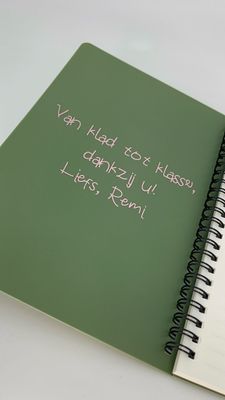 Van klad tot klasse,
dankzij u!
Liefs, Remi